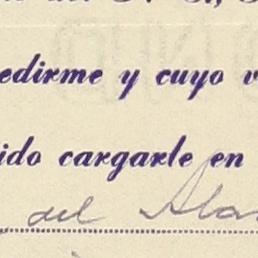 edirme y cuyo v
ido cargarle en
del Ala